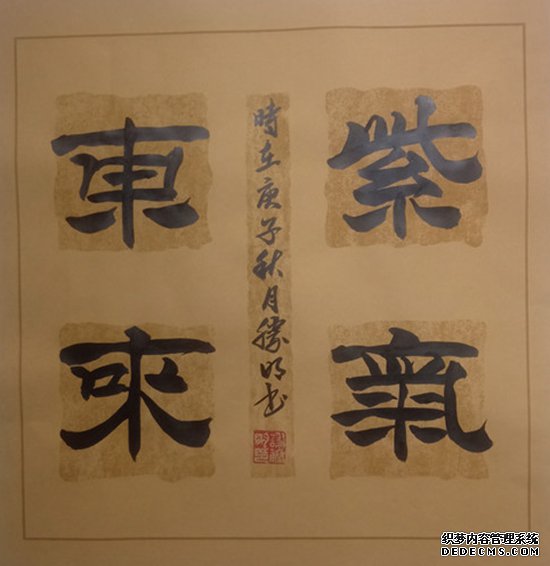 紫氣
東來
時在庚子秋月勝明书
织梦内容管理系统
DEDECMS.COM